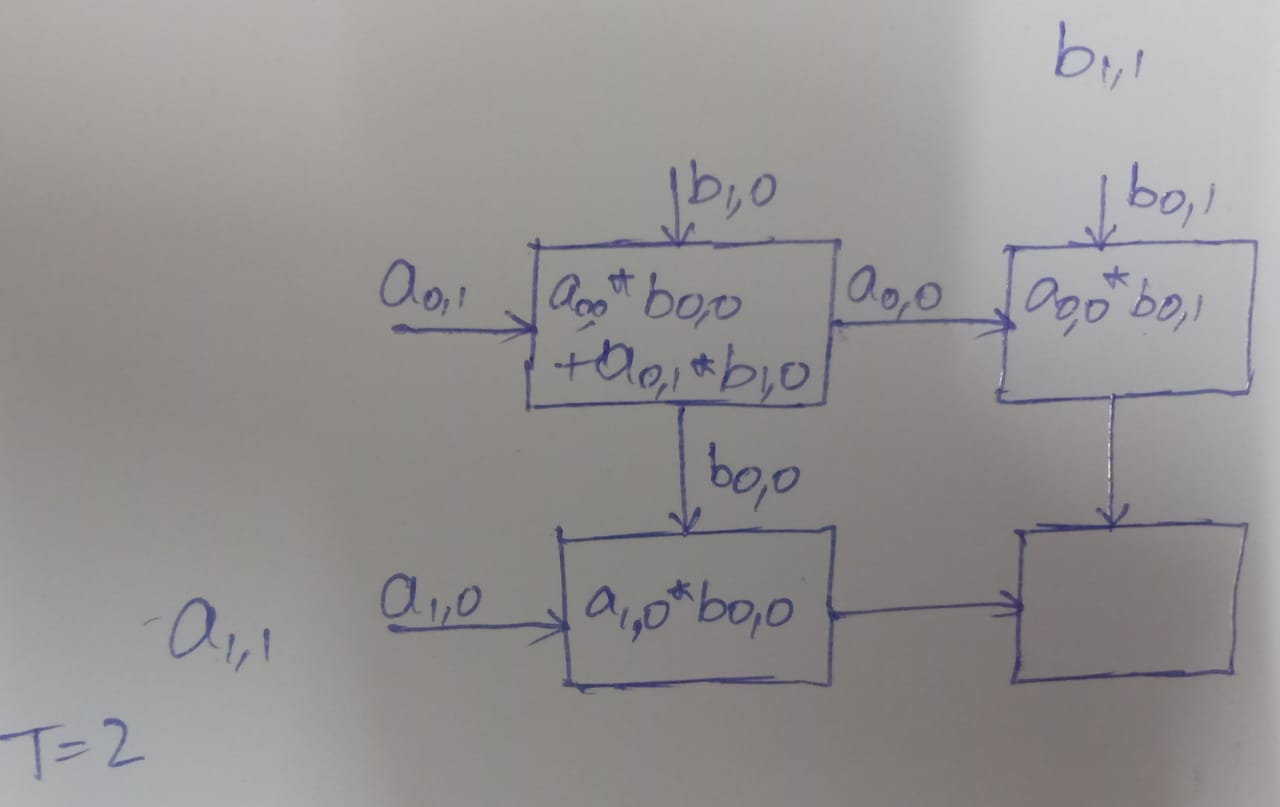 b1,1
b1,0
b0,1
a0,1
a0,0*b0,0
+a0,1*b1,0
a0,0
a0,0*b0,1
b0,0
a1,0
a1,0*b0,0
a1,1
T=2